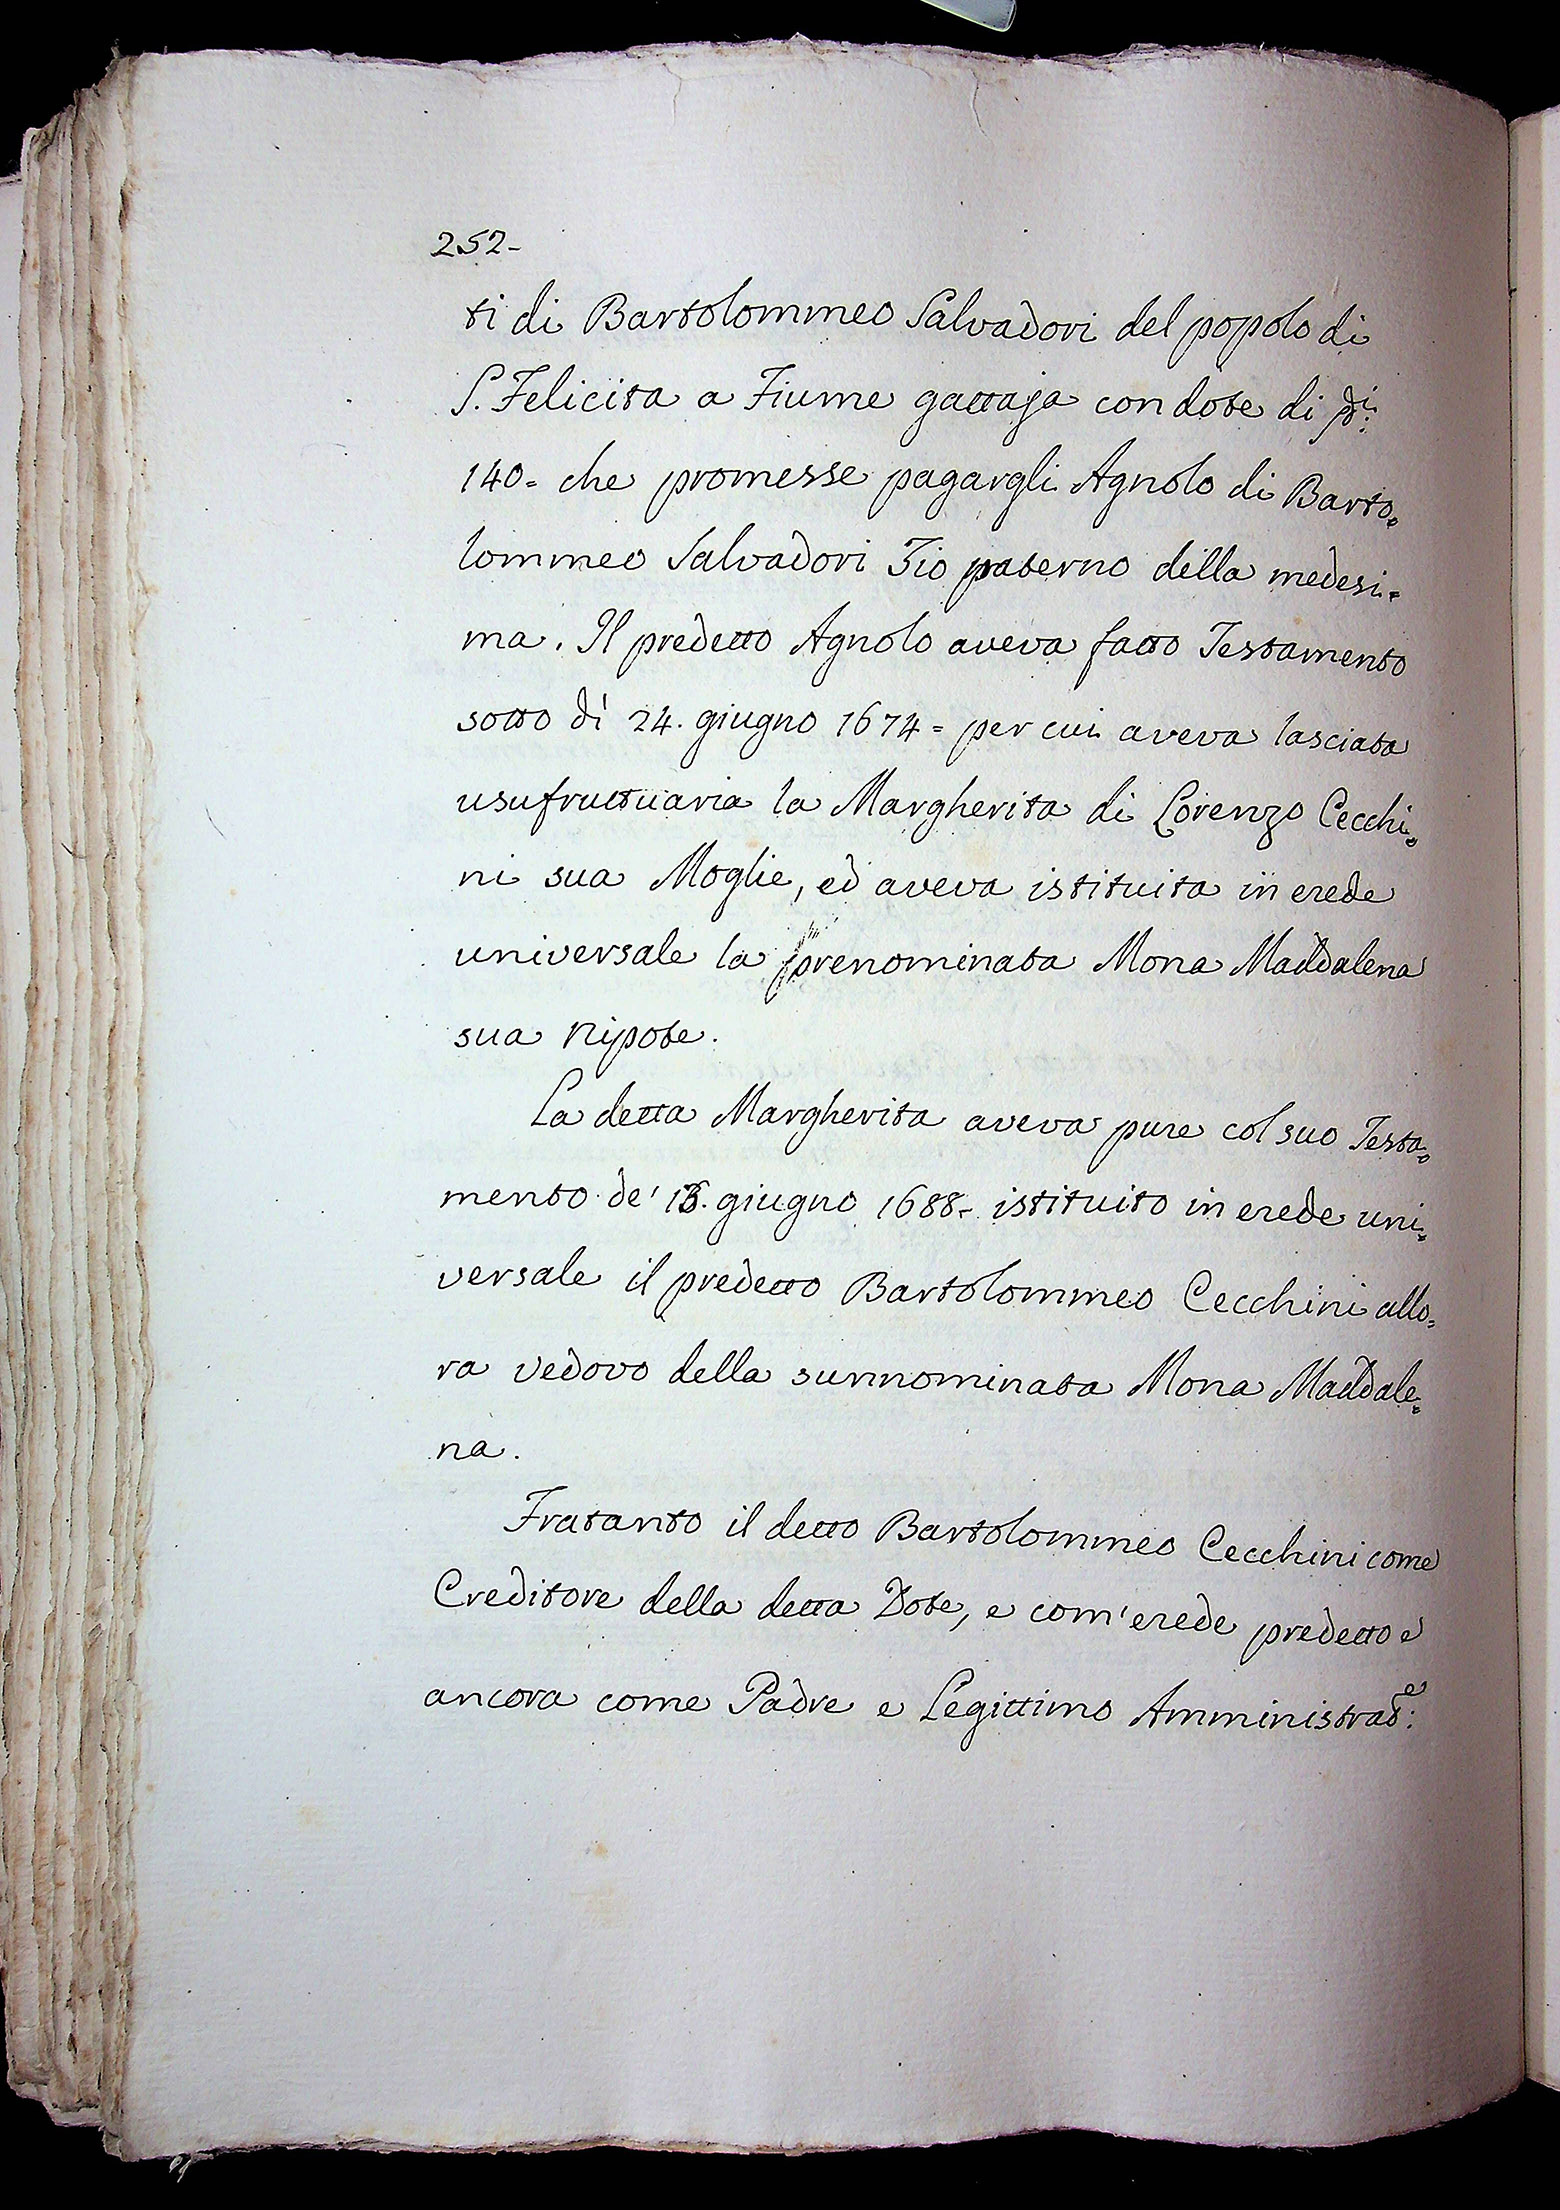 252-
ti di Bartolommeo Salvadori del popolo di
S. Felicita a Fiume gattaja con dote di
140= che promesse pagargli Agnolo di Barto=
lommeo Salvadori Zio paterno della medesi=
ma. Il predetto Agnolo aveva fatto Testamento
sotto dì 24. giugno 1674= per cui aveva lasciata
usufructuaria la Margherita di Lorenzo Cecchi=
ni sua Moglie, ed aveva istituita in erede
universale la prenominata Mona Maddalena
sua Nipote.
La detta Margherita aveva pure col suo Testa=
mento de' giugno 1688- istituito in erede uni=
versale il predetto Bartolommeo Cecchini allo=
ra vedovo della sunnominata Mona Maddale=
na.
Fratanto il detto Bartolommeo Cecchini come
Creditore della detta Dote, e com'erede predetto e
ancora come Padre e Legittimo Amministrat:e